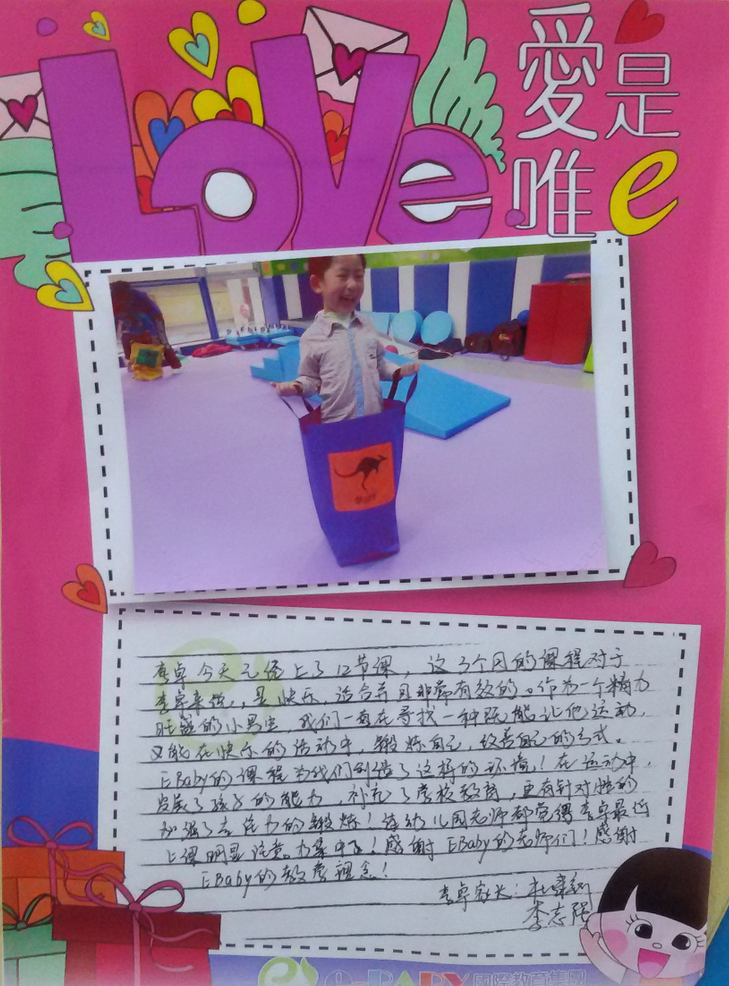 Love
愛是
唯e
李卓今天已经上了12节课，这3个月的课程对于
李卓来说，是快乐，适合并且非常有效的。作为一个精力
旺盛的小男生，我们一直在寻找一种既能让他运动，
又能在快乐的活动中，锻炼自己，改善自己的方式。
EBaby的课程为我们创造了这样的环境！在运动中，
发展了孩子的能力，补充了学校教育，更有针对性的
加强了专注力的锻炼！连幼儿园老师都觉得李卓最近
上课明显注意力集中了！感谢EBaby的老师们！感谢
EBaby的教学理念！
李卓家长：杜
李志强
e-BABY國際教育集團